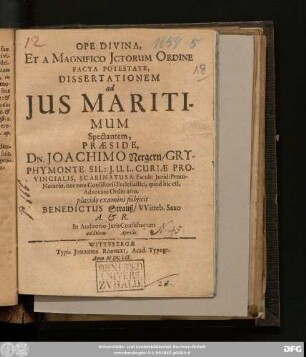 12
1659 5
18
OPE DIVINA,
ET A MAGNIFICO JCTORUM ORDINE
FACTA POTESTATE,
DISSERTATIONEM
ad
JUS MARITI-
MUM
Spectantem,
PRÆSIDE,
DN. JOACHIMO Nergern/ GRY-
PHYMONTE SIL: J.U.L. CURIÆ PRO-
VINCIALIS, SCABINATUS &
Notario, nec non Consistorii Ecclesiastici, quod hic est,
Advocato Ordinario.
placido examini subjicit
BENEDICTUS Strauß/ Witteb. Saxo
A. & R.
In Auditorio JurisConsultorum
ad Diem Aprilis.
N. 45
WITTEBERGÆ
Typis JOHANNIS Acad. Typogr.
Anno M DC LIX.
UNIVERS.
ZV HALLE